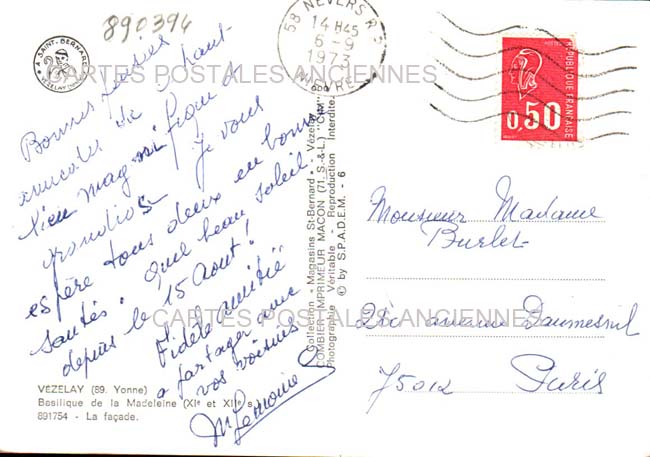 890394
A SAINT-BERNARD
VEZELAY
58 NEVERS R.P.
14H45
6-9
1973
NIEVRE
REPUBLIQUE FRANÇAISE
POSTES
0,50
CARTES POSTALES ANCIENNES
Bonnes
de ce haut
lieu magnifique &
grandiose Je vous
espère tous deux en bonne
santés. Quel beau soleil
depuis le 15 Aout!
Fidèle amitié
a partager avec
vos voisins
M Lemoine
Collection - Magasins St-Bernard - Vézelay
COMBIER IMPRIMEUR MACON (71.S.-&-L.) "CIM"
Photographie Véritable - Reproduction Interdite
© by S.P.A.D.E.M. - 6
Monsieur Madame
Burlet
CARTES POSTALES ANCIENNES
avenue Daumesnil
75012 Paris
VEZELAY (89. Yonne)
Basilique de la Madeleine (XIe et XIIe s.)
891754 - La façade.